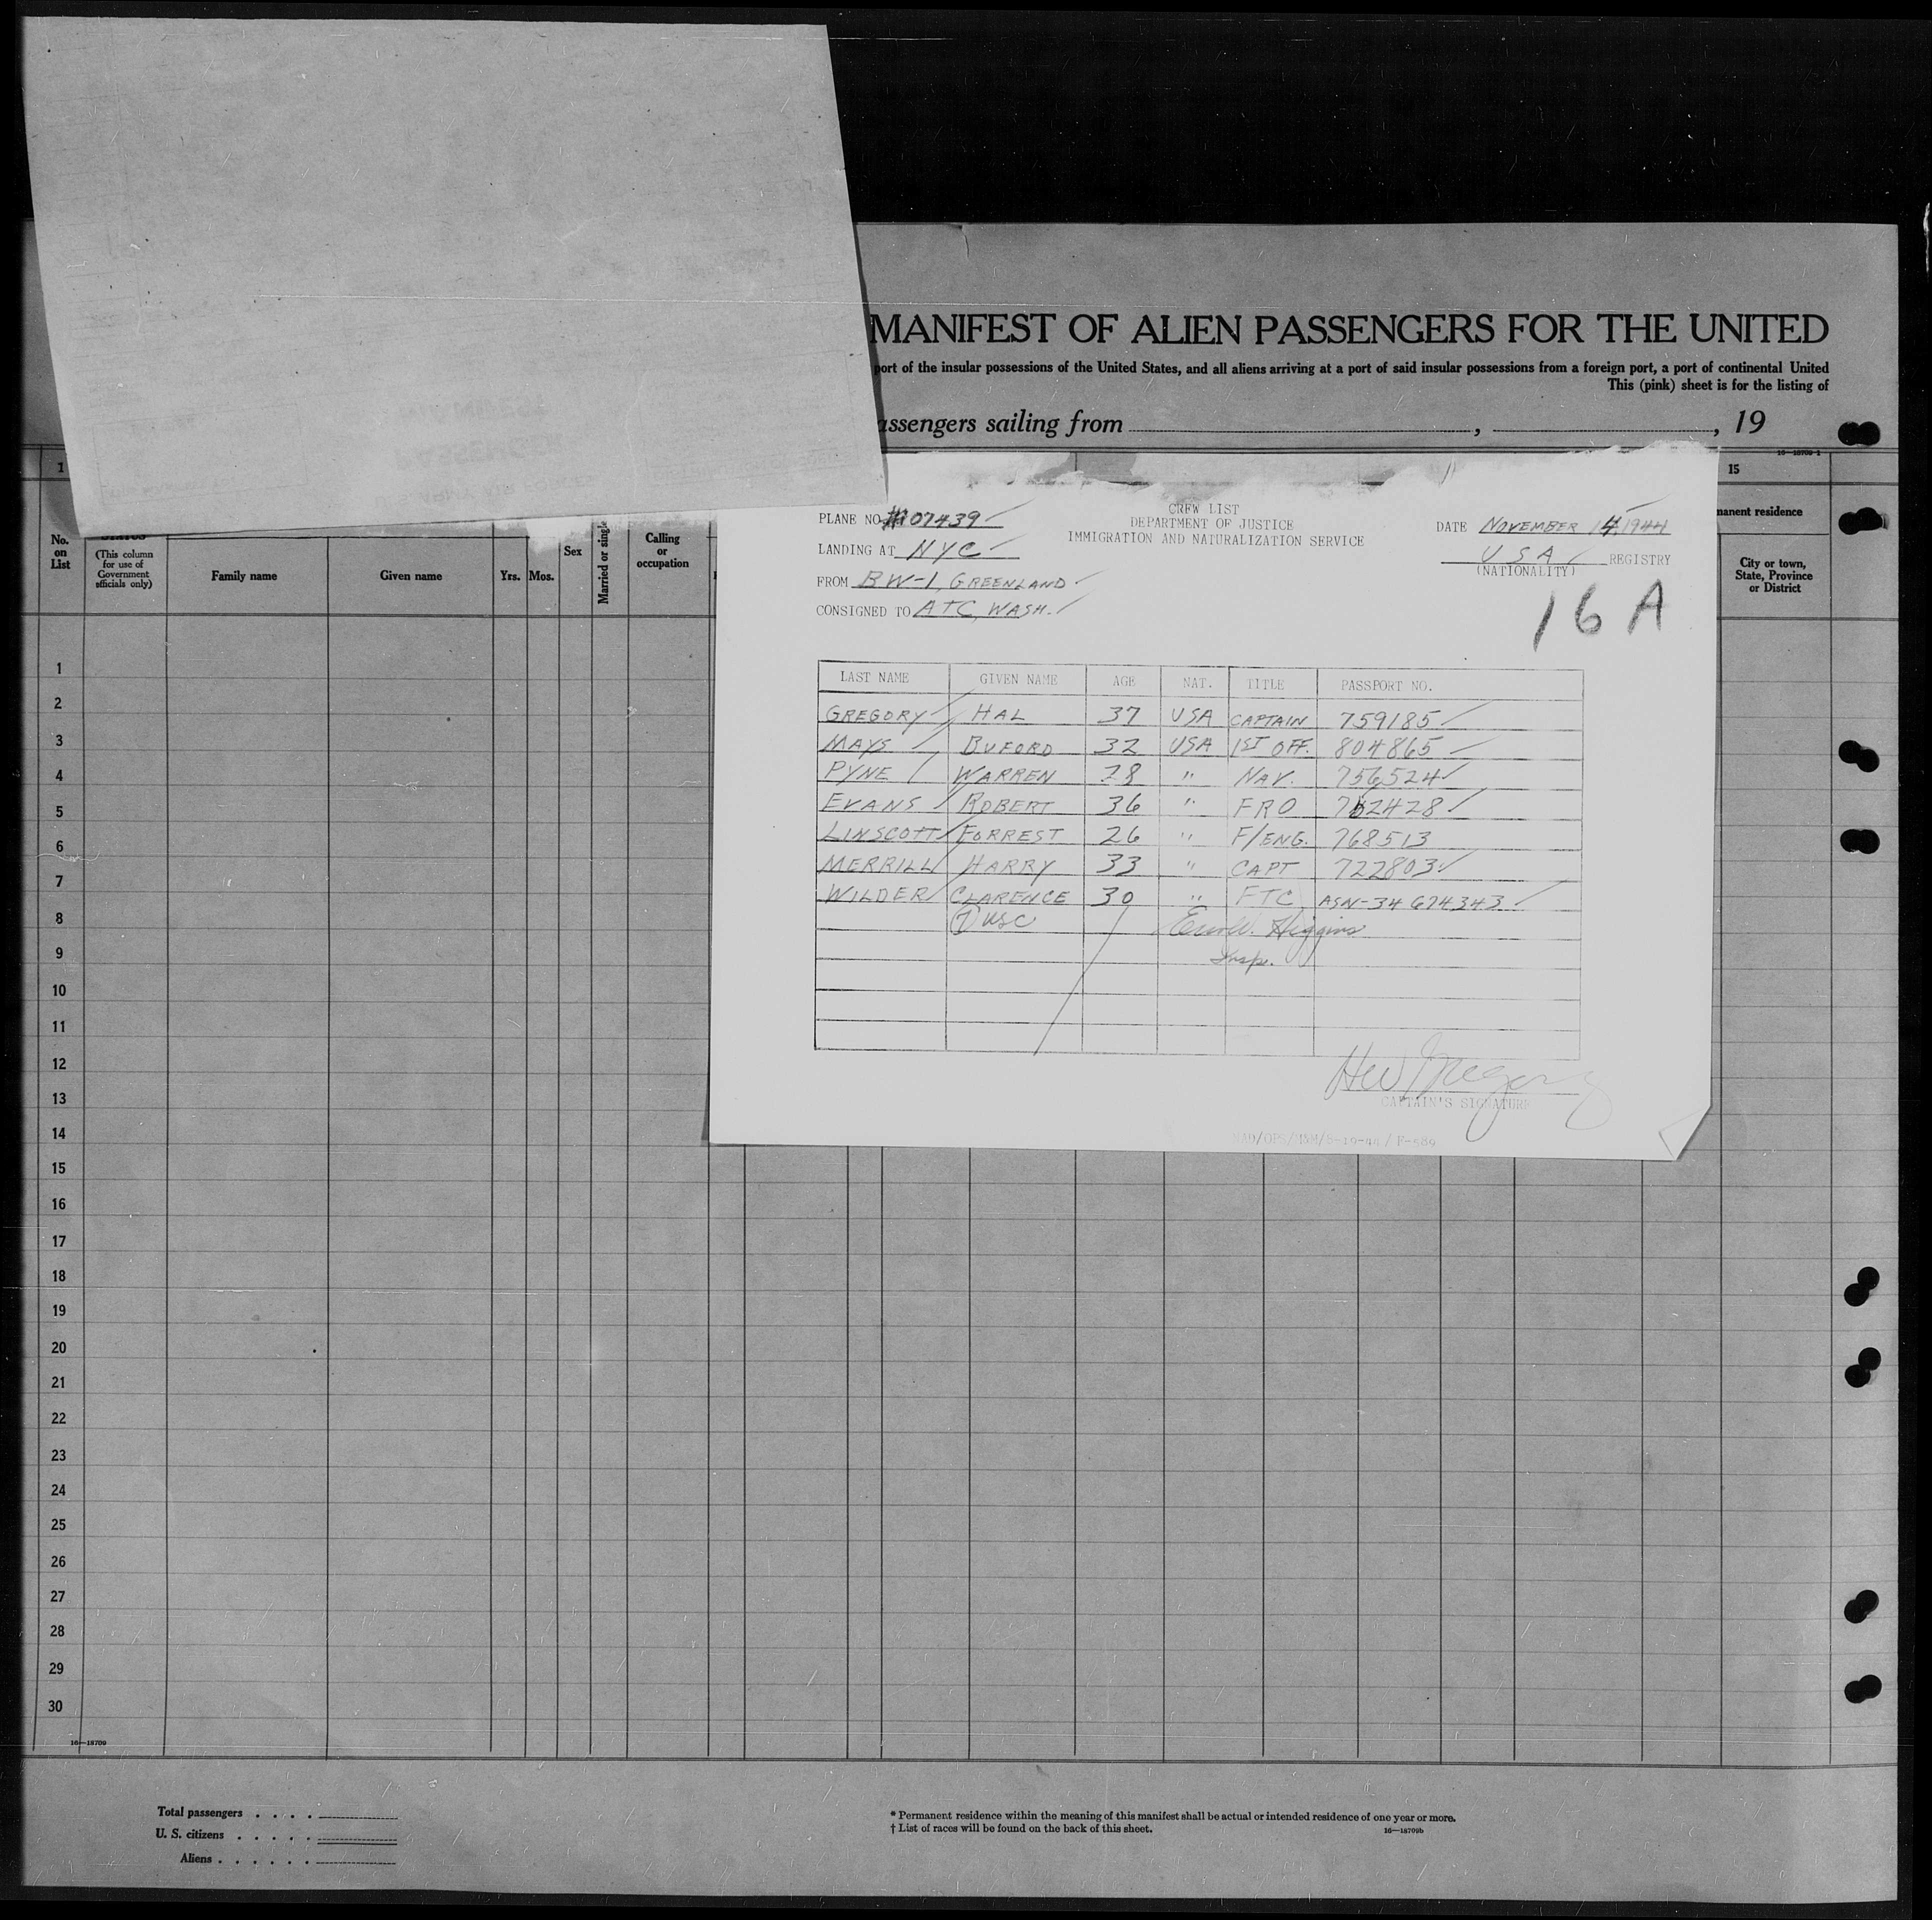 MANIFEST OF ALIEN PASSENGERS FOR THE UNITED
port of the insular possessions of the United States, and all aliens arriving at a port of said insular possessions from a foreign port, a port of continental United
This (pink) sheet is for the listing of
assengers sailing from , , 19
16—18709-1
1
15
No. on List
STATUS (This column for use of Government officials only)
Family name
Given name
Yrs.
Mos.
Sex
Married or single
Calling or occupation
manent residence
City or town, State, Province or District
CREW LIST
DEPARTMENT OF JUSTICE
IMMIGRATION AND NATURALIZATION SERVICE
PLANE NO. 07439
LANDING AT NYC
FROM BW-1, GREENLAND
CONSIGNED TO ATC, WASH.
DATE NOVEMBER 14, 1944
USA REGISTRY
(NATIONALITY)
16 A
LAST NAME GIVEN NAME AGE NAT. TITLE PASSPORT NO.
GREGORY HAL 37 USA CAPTAIN 759185
MAYS BUFORD 32 USA 1ST OFF. 804865
PYNE WARREN 28 " NAV. 756524
EVANS ROBERT 36 " FRO 762428
LINSCOTT FORREST 26 " F/ENG. 768513
MERRILL HARRY 33 " CAPT 722803
WILDER CLARENCE 30 " FTC ASN-34674343
(7) USC Higgins
Insp.
HW Gregory
CAPTAIN'S SIGNATURE
1
2
3
4
5
6
7
8
9
10
11
12
13
14
15
16
17
18
19
20
21
22
23
24
25
26
27
28
29
30
16—18709
Total passengers . . . .
U. S. citizens . . . . .
Aliens . . . . . .
* Permanent residence within the meaning of this manifest shall be actual or intended residence of one year or more.
† List of races will be found on the back of this sheet.
16—18709b